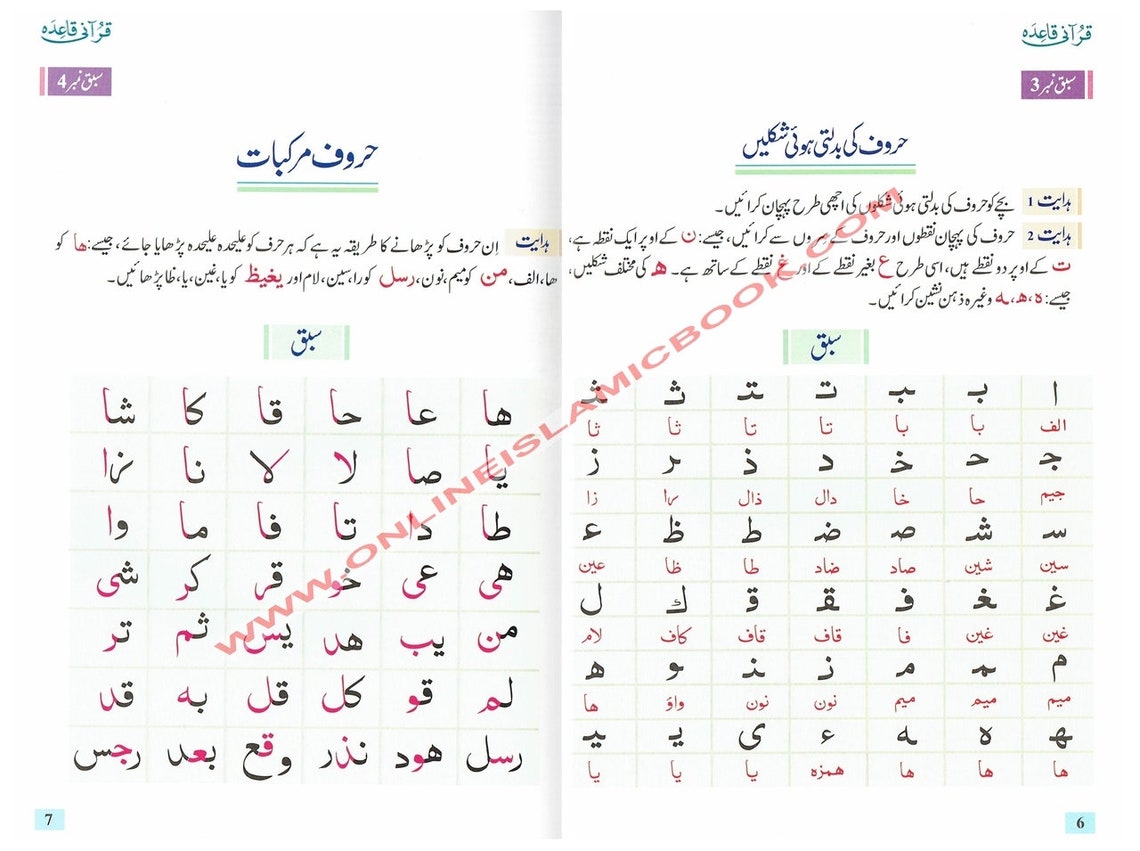 قرآنی قاعدہ
سبق نمبر 3
حروف کی بدلتی ہوئی شکلیں
ہدایت 1 بچے کو حروف کی بدلتی ہوئی شکلوں کی اچھی طرح پہچان کرائیں۔
ہدایت 2 حروف کی پہچان نقطوں اور حروف کے سِروں سے کرائیں، جیسے: ن کے اوپر ایک نقطہ ہے،
ت کے اوپر دو نقطے ہیں، اسی طرح ع بغیر نقطے کے اور غ نقطے کے ساتھ ہے۔ ھ کی مختلف شکلیں،
جیسے: ہ، ھ، ـہ وغیرہ ذہن نشین کرائیں۔
سبق
ا بـ ـبـ تـ ـتـ ثـ ـثـ
الف با با تا تا ثا ثا
جـ حـ خـ د ذ ـر ز
جیم حا خا دال ذال را زا
سـ شـ صـ ضـ ط ظ عـ
سین شین صاد ضاد طا ظا عین
غـ ـغـ فـ ـقـ قـ ك ل
غین غین فا قاف قاف کاف لام
م ـمـ مـ نـ ـنـ و ھ
میم میم میم نون نون واؤ ھا
ـهـ ہ ـہ ء ی یـ ـیـ
ھا ھا ھا همزہ یا یا یا
6
قرآنی قاعدہ
سبق نمبر 4
حروف مرکبات
ہدایت اِن حروف کو پڑھانے کا طریقہ یہ ہے کہ ہر حرف کو علیحدہ علیحدہ پڑھایا جائے، جیسے: ھا کو
ھا، الف، من کو میم، نون، رسل کو را، سین، لام اور یغیظ کو یا، غین، یا، ظا پڑھائیں۔
سبق
ھا عا حا قا کا شا
یا صا لا لا نا زا
طا دا تا فا ما وا
ھی عی خو قر کر شی
من یب ھد یس ثم تر
لم قو کل قل بہ قد
رسل ھود نذر وقع بعد رجس
7
WWW.ONLINEISLAMICBOOK.COM